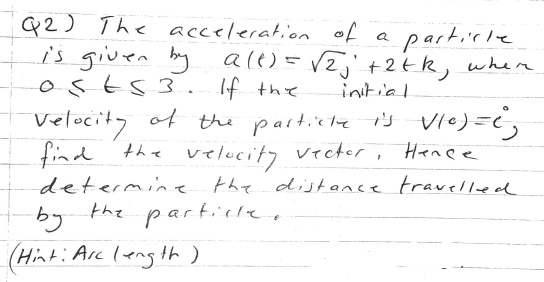 Q2) The acceleration of a particle
is given by a(t) = √2 j + 2t k, when
0 ≤ t ≤ 3. If the initial
velocity of the particle is V(0) = i,
find the velocity vector, Hence
determine the distance travelled
by the particle.
(Hint: Arc length)